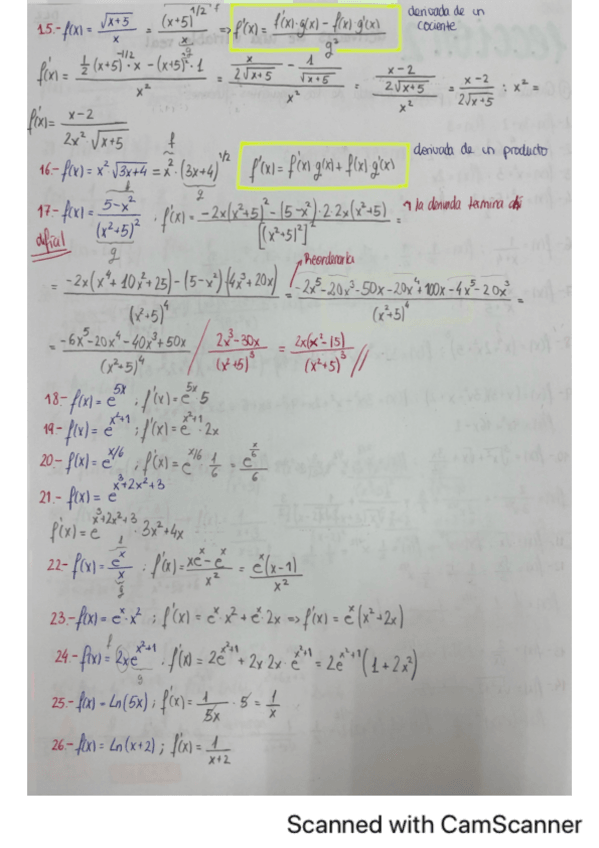 15.- f(x) = √(x+5) / x = (x+5)^1/2 / x ⇒ f'(x) = f'(x)·g(x) - f(x)·g'(x) / g² derivada de un cociente
f'(x) = 1/2 (x+5)^-1/2 · x - (x+5)^1/2 · 1 / x² = x / 2√(x+5) - 1 / √(x+5) / x² = x-2 / 2√(x+5) / x² = x-2 / 2√(x+5) : x² =
f'(x) = x-2 / 2x²·√(x+5)
16.- f(x) = x² √(3x+4) = x² · (3x+4)^1/2 f'(x) = f'(x) g(x) + f(x) g'(x) derivada de un producto
17.- f(x) = 5-x² / (x²+5)² . f'(x) = -2x(x²+5)² - (5-x²)·2·2x(x²+5) / [(x²+5)²]² = → la derivada termina
difícil
= -2x(x⁴+10x²+25) - (5-x²)(4x³+20x) / (x²+5)⁴ = Reordenarla -2x⁵-20x³-50x-20x⁴+100x-4x⁵-20x³ / (x²+5)⁴ =
= -6x⁵-20x⁴-40x³+50x / (x²+5)⁴ / 2x³-30x / (x²+5)³ = 2x(x²-15) / (x²+5)³ //
18- f(x) = e^5x ; f'(x) = e^5x · 5
19- f(x) = e^x²+1 ; f'(x) = e^x²+1 · 2x
20- f(x) = e^x/6 ; f'(x) = e^x/6 · 1/6 = e^x/6 / 6
21.- f(x) = e^x³+2x²+3
f'(x) = e^x³+2x²+3 · 3x²+4x
22- f(x) = e^x / x ; f'(x) = xe^x - e^x / x² = e^x(x-1) / x²
23.- f(x) = e^x · x² ; f'(x) = e^x · x² + e^x · 2x ⇒ f'(x) = e^x (x²+2x)
24- f(x) = 2xe^x²+1 . f'(x) = 2e^x²+1 + 2x 2x · e^x²+1 = 2e^x²+1 (1+2x²)
25- f(x) = Ln(5x) ; f'(x) = 1/5x · 5 = 1/x
26- f(x) = Ln(x+2) ; f'(x) = 1 / x+2
Scanned with CamScanner